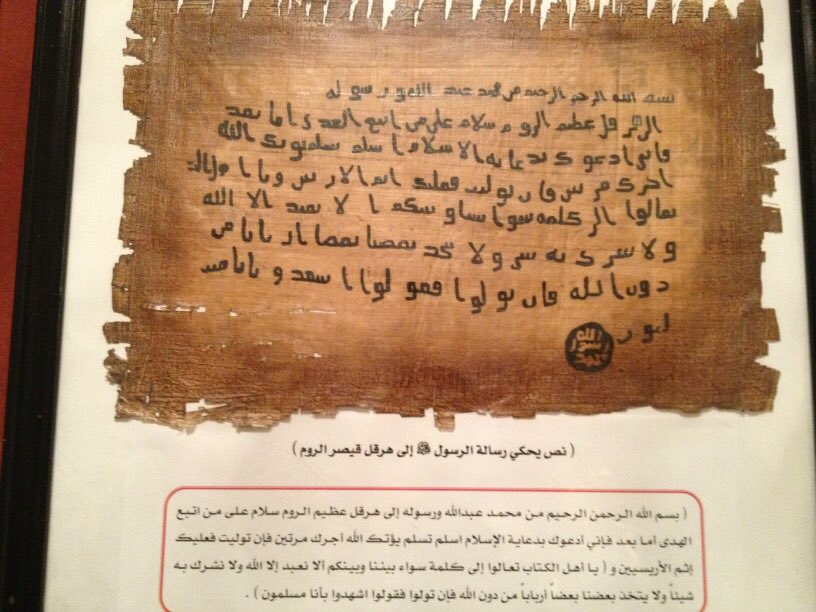 بسم الله الرحمن الرحيم من محمد عبد الله و رسوله
الى هرقل عظيم الروم سلام على من اتبع الهدى اما بعد
فانى ادعوك بدعاية الاسلام اسلم تسلم يؤتك الله
اجرك مرتين فان توليت فعليك اثم الاريسين ويا اهل الكتا
تعالوا الى كلمة سوا بيننا وبينكم ا لا نعبد الا الله
و لا نشرك به شى ولا يتخذ بعضنا بعضا اربابا من
دون الله فان تولوا فقولوا ا شهدو با نا مسـ
لمون
الله
رسول
محمد
( نص يحكي رسالة الرسول ﷺ إلى هرقل قيصر الروم )
( بسم الله الرحمن الرحيم من محمد عبدالله ورسوله إلى هرقل عظيم الروم سلام على من اتبع
الهدى أما بعد فإني أدعوك بدعاية الإسلام اسلم تسلم يؤتك الله أجرك مرتين فإن توليت فعليك
إثم الأريسيين و ( يا أهل الكتاب تعالوا إلى كلمة سواء بيننا وبينكم ألا نعبد إلا الله ولا نشرك به
شيئاً ولا يتخذ بعضنا بعضاً أرباباً من دون الله فإن تولوا فقولوا اشهدوا بأنا مسلمون ) .